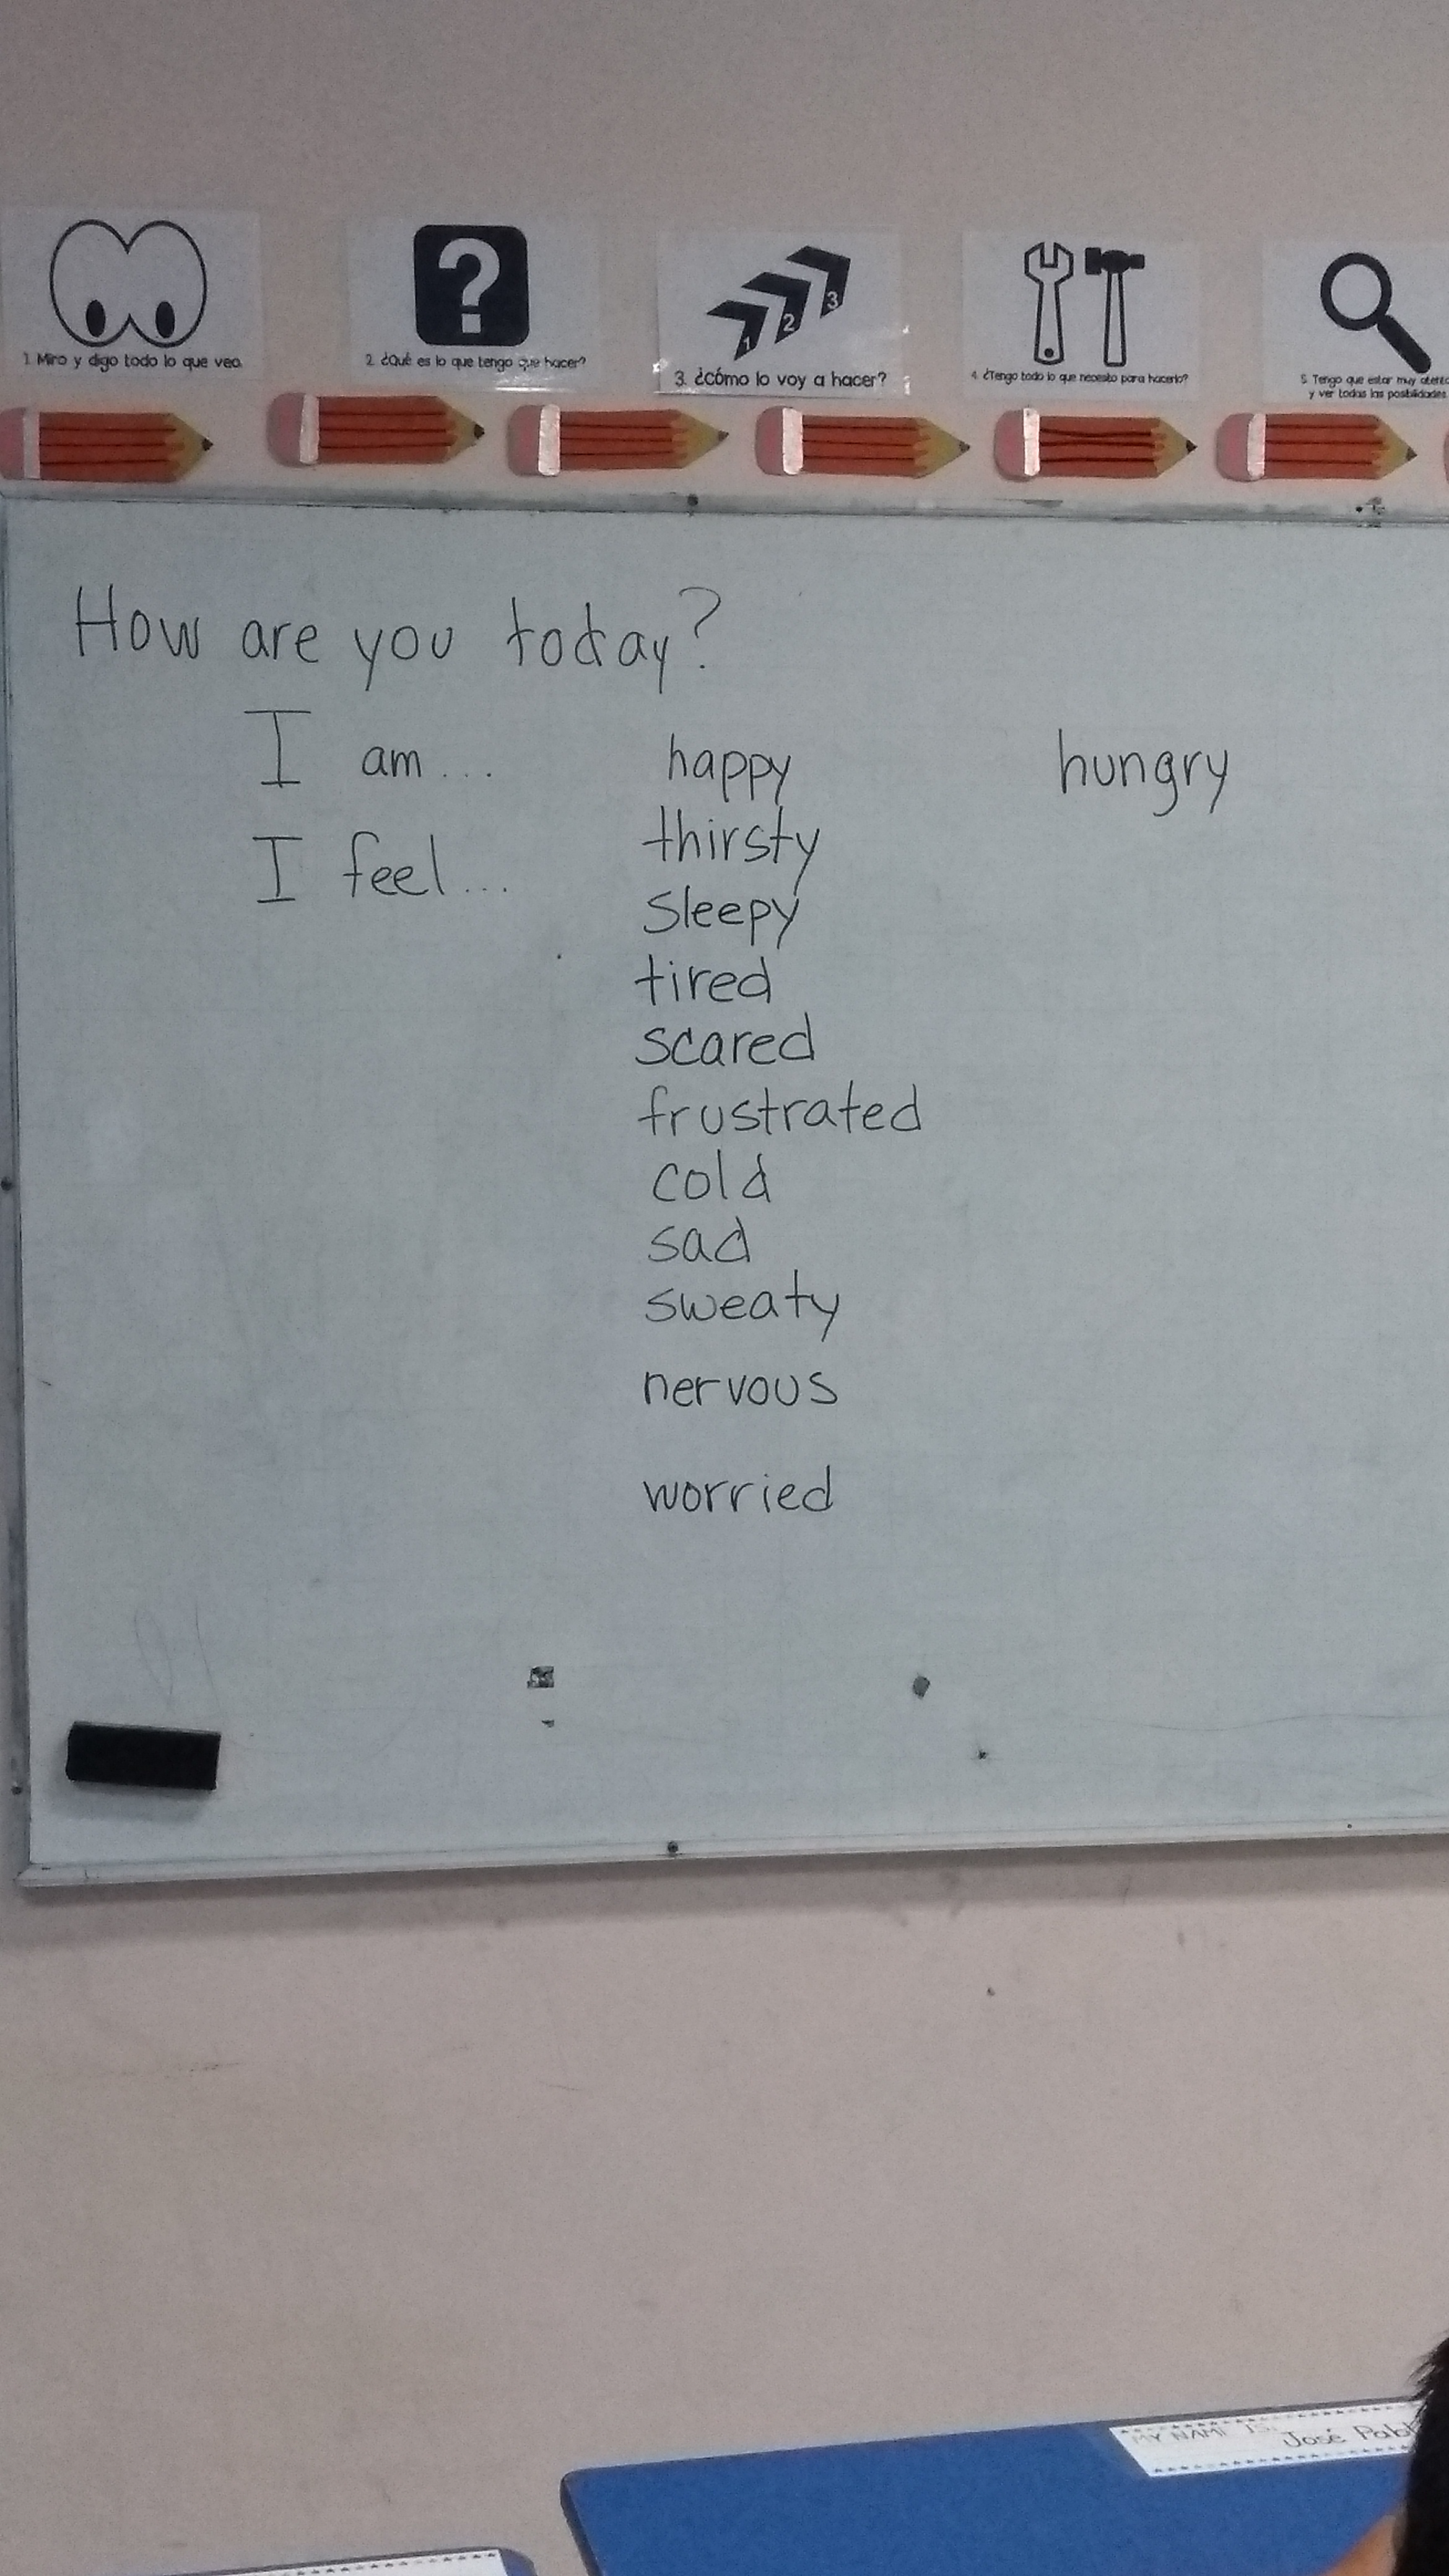 1. Miro y digo todo lo que veo.
2. ¿Qué es lo que tengo que hacer?
1 2 3
3. ¿cómo lo voy a hacer?
4. ¿Tengo todo lo que necesito para hacerlo?
5. Tengo que estar muy atento
y ver todas las posibilidades
How are you today?
I am... happy hungry
I feel... thirsty
sleepy
tired
scared
frustrated
cold
sad
sweaty
nervous
worried
MY NAME IS:
José